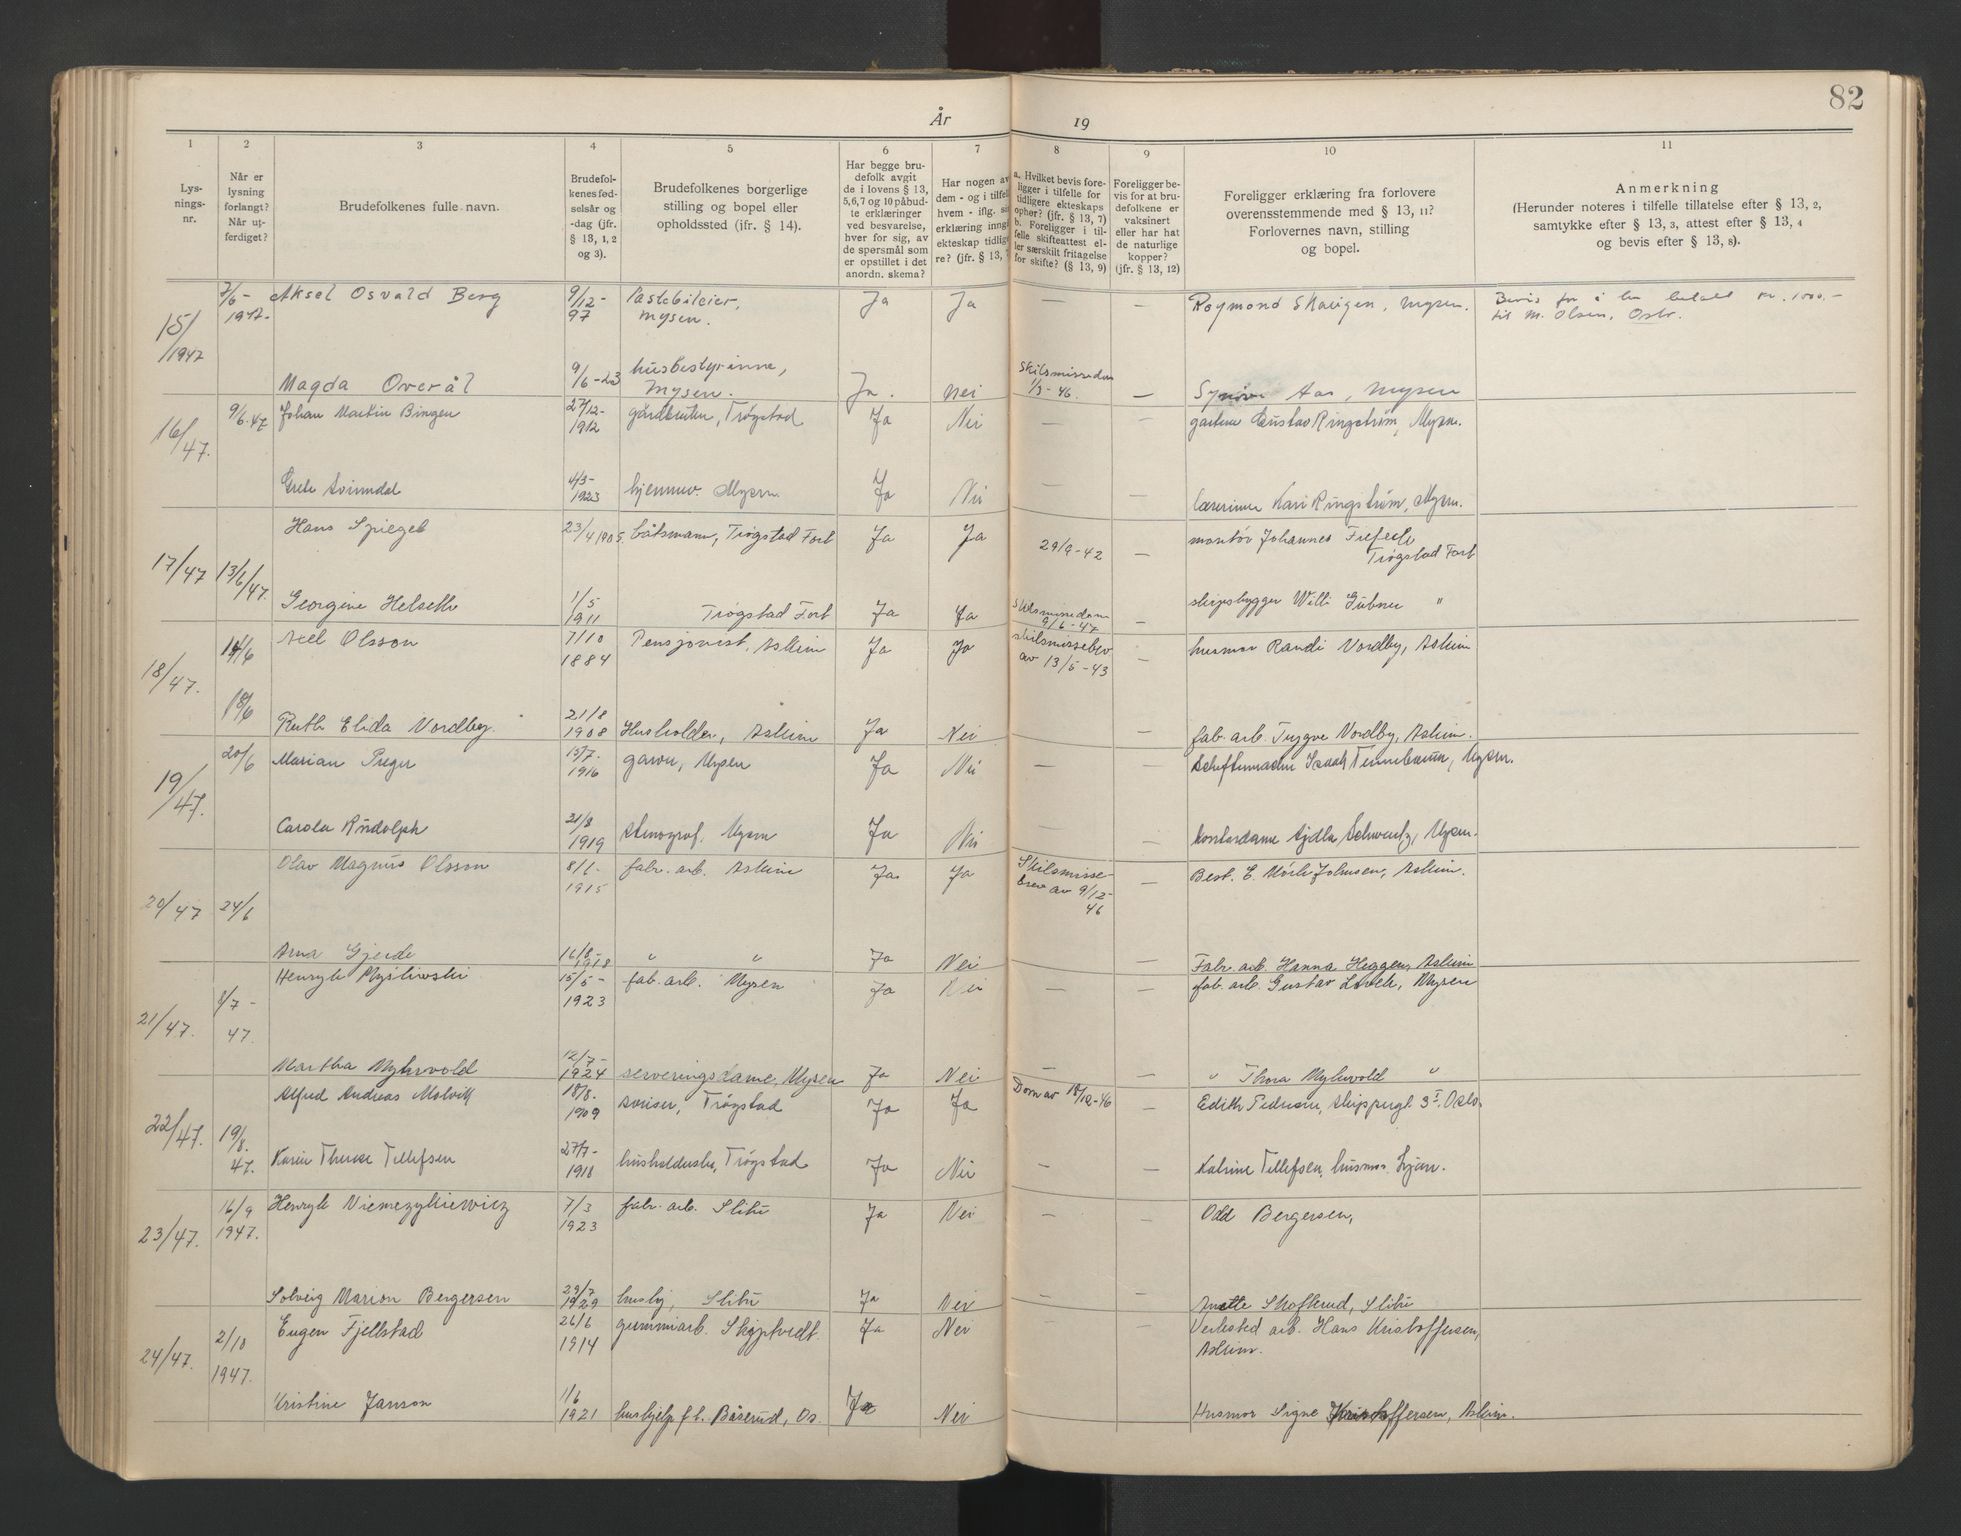 82
År 19
1 2 3 4 5 6 7 8 9 10 11
Lys-
nings-
nr.
Når er
lysning
forlangt?
Når ut-
ferdiget?
Brudefolkenes fulle navn.
Brudefol-
kenes fød-
selsår og
-dag (jfr.
§ 13, 1, 2
og 3).
Brudefolkenes borgerlige
stilling og bopel eller
opholdssted (jfr. § 14).
Har begge bru-
defolk avgit
de i lovens § 13,
5, 6, 7 og 10 påbud-
te erklæringer
ved besvarelse,
hver for sig, av
de spørsmål som
er opstillet i det
anordn. skema?
Har nogen av
dem - og i tilfelle
hvem - iflg. sin
erklæring inngått
ekteskap tidlige-
re? (jfr. § 13,
a. Hvilket bevis fore-
ligger i tilfelle for
tidligere ekteskaps
ophør? (jfr. § 13, 7)
b. Foreligger i til-
felle skifteattest el-
ler særskilt fritagelse
for skifte? (§ 13, 9)
Foreligger be-
vis for at bru-
defolkene er
vaksinert
eller har hat
de naturlige
kopper?
(jfr. § 13, 12)
Foreligger erklæring fra forlovere
overensstemmende med § 13, 11?
Forlovernes navn, stilling
og bopel.
Anmerkning
(Herunder noteres i tilfelle tillatelse efter § 13, 2,
samtykke efter § 13, 3, attest efter § 13, 4
og bevis efter § 13, 8).
15/1947 7/6-1947. Aksel Osvald Berg 9/12-97 Lastebileier, Mysen. Ja Ja — — Raymond Skaugen, Mysen. Bevis for å ha betalt kr. 1000.-
til M. Olsen, Oslo.
Magda Overål 9/6-23 husbestyrinne, Mysen. Ja. Nei Skilsmissedom 1/3-46. — Synøve Aas, Mysen
16/47. 9/6.47 Johan Martin Bingen 27/12-1912 gårdbruker, Trøgstad Ja Nei — — gartner Gustav Ringstrøm, Mysen.
Grete Svinndal 4/3-1923 hjemmev. Mysen. Ja Nei — — Lærerinne Kari Ringstrøm, Mysen.
17/47 13/6/47. Hans Spiegel 23/4 1905. båtsmann, Trøgstad Fort Ja Ja 29/9-42 — montør Johannes
Trøgstad Fort
Georgine Helseth 1/5 1911 Trøgstad Fort Ja Ja Skilsmissedom 9/6-47 — skipsbygger Willi Gübner "
18/47. 14/6 Axel Olsson 7/10 1884 Pensjonist, Askim Ja Ja skilsmissebev av 13/5-43 — husmor Randi Nordby, Askim
18/6 Ruth Elida Nordby. 21/8 1908 Husholder, Askim Ja Nei — — fab. arb. Trygve Nordby, Askim.
19/47. 20/6 Marian Preger 15/7. 1916 garver, Mysen Ja Nei — — Isaak Tennebaum, Mysen.
Carola Rudolph 21/8 1919 stenograf, Mysen Ja Nei — — kontordame Ajdla Schwartz, Mysen.
20/47 24/6 Olav Magnus Olsson 8/1- 1915 fabr. arb. Askim Ja Ja Skilsmisse-
brev av 9/12-
46 — Best. E. Mørk Johnsen, Askim.
Arna Gjerde 16/8-1918 " " Ja Nei — Fabr. arb. Hanna Heggen, Askim
21/47. 1/7-47. Henryk Myśliwski 15/5-1923 fab. arb. Mysen Ja Nei — — fab. arb. Gustav Mysen
Martha Myhrvold 12/7-1924 serveringsdame, Mysen Ja Nei — — " Thora Myhrvold "
22/47. 19/8.47. Alfred Andreas Molvik 18/8. 1909 Trøgstad Ja Ja Dom av 18/12-46 — Edith Pedersen, Skippergt. 3 I, Oslo.
Karin Therese Tellefsen 27/7-1918 husholderske, Trøgstad Ja Nei — — Katrine Tellefsen, husmor, Ljan.
23/47. 16/9 1947. Henryk Niemczykiewicz 7/3 1923 fabr. arb. Slitu Ja Nei — — Odd Bergersen,
Solveig Marion Bergersen 29/7 1929 hushj, Slitu Ja Nei — — Anette Skofterud, Slitu
24/47. 2/10 1947. Eugen Fjellstad 26/6 1914 gummiarb. Skjptvedt. Ja Nei — — Verksted arb. Hans Kristoffersen,
Askim.
Kristine Janson 1/6 1921 hushjelp f.h. Båserud, Os. Ja Nei — — Husmor Signe Kristoffersen, Askim.